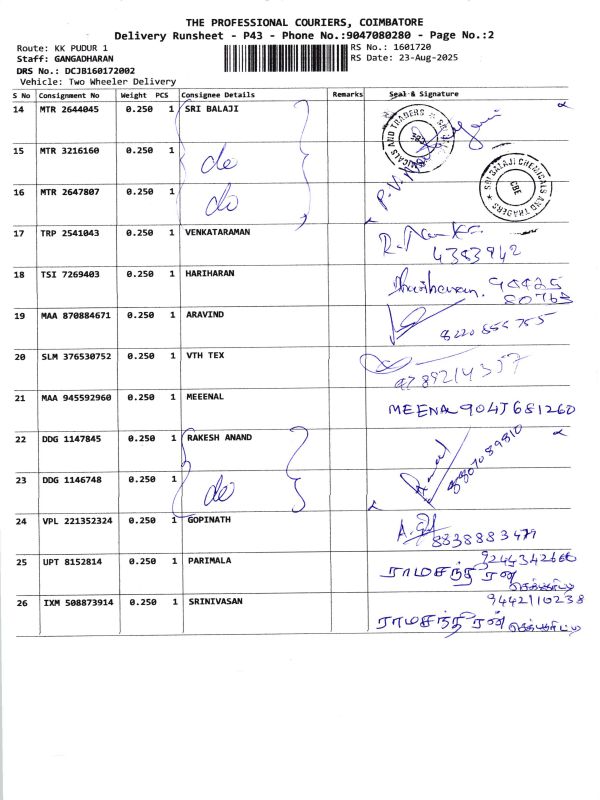 THE PROFESSIONAL COURIERS, COIMBATORE
Delivery Runsheet - P43 - Phone No.:9047080280 - Page No.:2
Route: KK PUDUR 1 RS No.: 1601720
Staff: GANGADHARAN RS Date: 23-Aug-2025
DRS No.: DCJB160172002
Vehicle: Two Wheeler Delivery
S No Consignment No Weight PCS Consignee Details Remarks Seal & Signature
14 MTR 2644045 0.250 1 SRI BALAJI
15 MTR 3216160 0.250 1 do
16 MTR 2647807 0.250 1 do
SRI BALAJI CHEMICALS AND TRADERS
CBE
17 TRP 2541043 0.250 1 VENKATARAMAN
4383942
18 TSI 7269403 0.250 1 HARIHARAN Hariharan. 98425
80763
19 MAA 870884671 0.250 1 ARAVIND
8220855755
20 SLM 376530752 0.250 1 VTH TEX
9789214357
21 MAA 945592960 0.250 1 MEEENAL MEENA 9047681260
22 DDG 1147845 0.250 1 RAKESH ANAND
8807089810
23 DDG 1146748 0.250 1 do
24 VPL 221352324 0.250 1 GOPINATH
8838883479
25 UPT 8152814 0.250 1 PARIMALA 9244342666
ராமசந்திரன்
26 IXM 508873914 0.250 1 SRINIVASAN 9442110238
ராமசந்திரன்